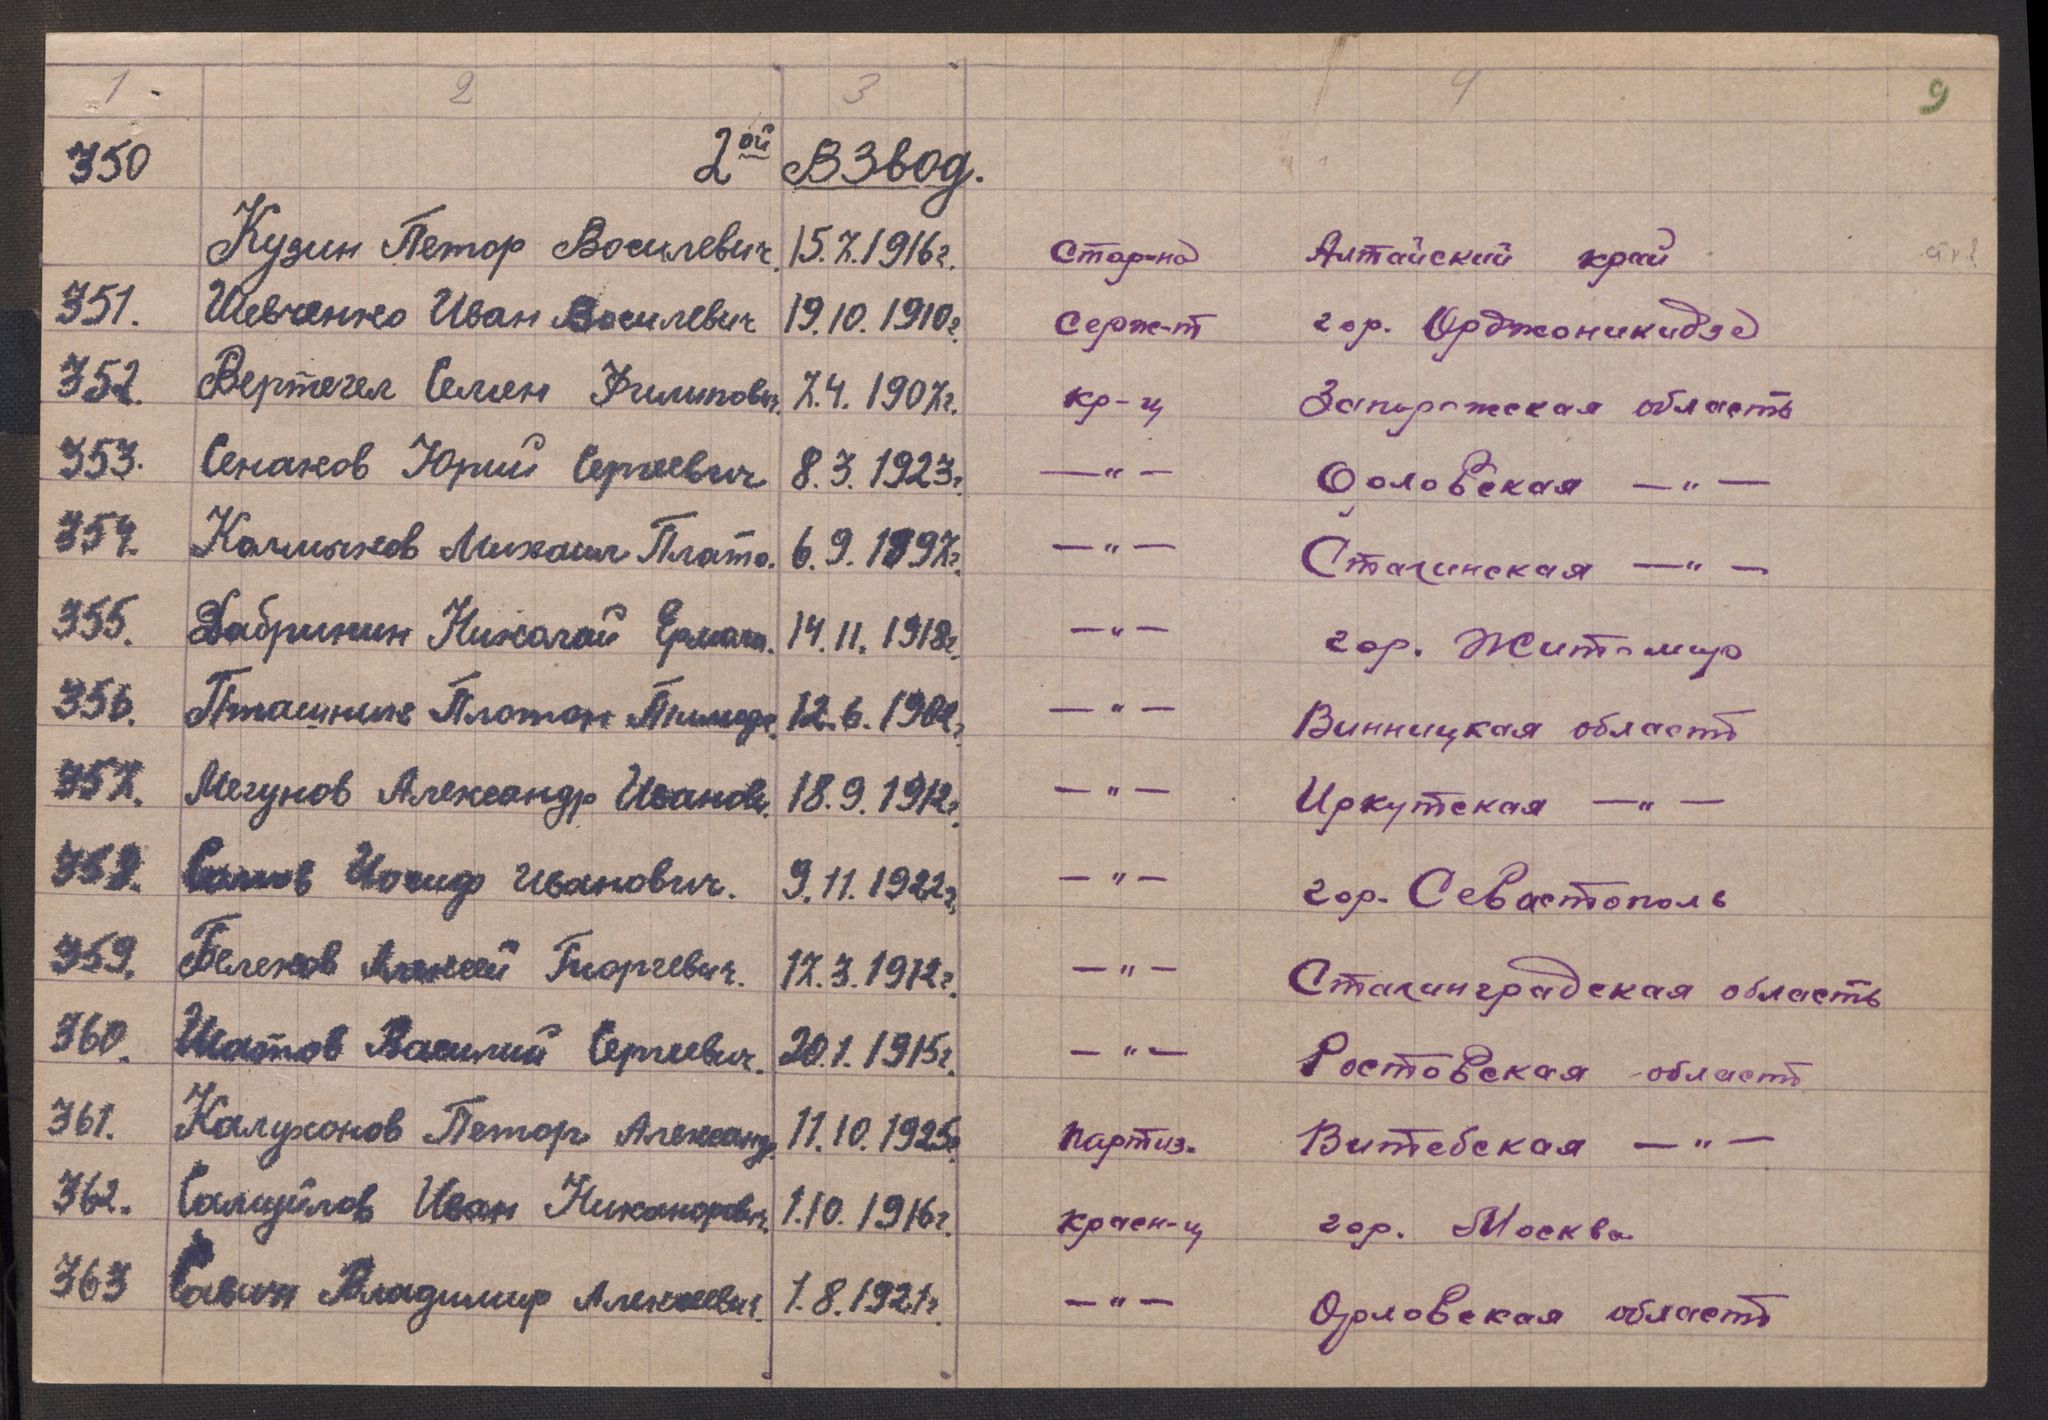 1 2 3 4 9
350 2ой Взвод.
Кузин Петор Василевич. 15.7.1916г. Стар-на Алтайский край
351. Шевченко Иван Василевич 19.10.1910г. Серж-т гор. Орджоникидзе
352. Вертегел Семен Филипович. 7.4.1907г. кр-ц Запорожская область
353. Сенаков Юрий Сергеевич 8.3.1923г. —"— Орловская —"—
354. Калмыков Михаил Плато. 6.9.1897г. —"— Сталинская —"—
355. Дабринин Николай Ермола. 14.11.1918г. —"— гор. Житомир
356. Платон 12.6. —"— Винницкая область
357. Мегунов Александр Иванов. 18.9.1912г. —"— Иркутская —"—
358. Иосиф Иванович. 9.11.1922г. —"— гор. Севастополь
359. Белеков Алексей Гиоргевич. 17.3.1912г. —"— Сталинградская область
360. Шатов Василий Сергеевич. 20.1.1915г. —"— Ростовская область
361. Калухонов Петор Александ. 11.10.1925г. партиз. Витебская —"—
362. Самуйлов Иван Никонорович. 1.10.1916г. красн-ц гор. Москва
363 Савин Владимир Алексеевич. 1.8.1921г. —"— Орловская область